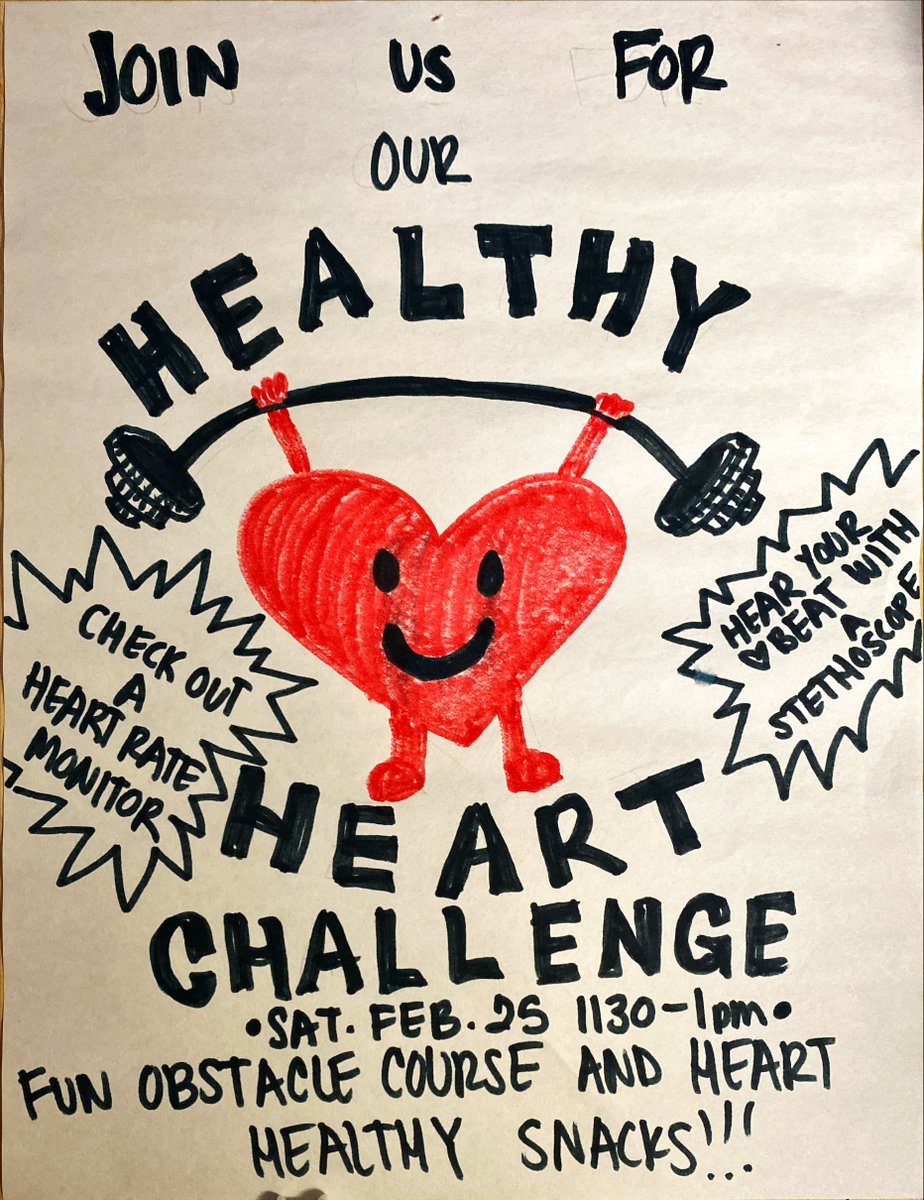 JOIN US FOR
OUR
HEALTHY
CHECK OUT
A
HEART RATE
MONITOR
HEAR YOUR
♡BEAT WITH
A
STETHOSCOPE
HEART
CHALLENGE
•SAT. FEB. 25 1130-1pm•
FUN OBSTACLE COURSE AND HEART
HEALTHY SNACKS!!!